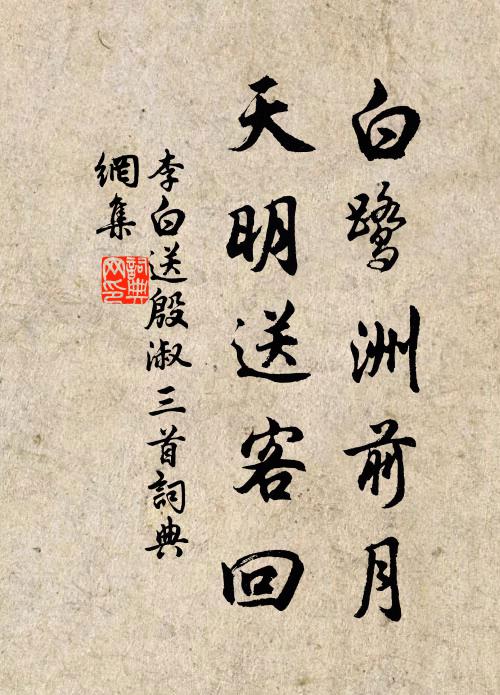 白鷺洲前月
天明送客回
李白送殷淑三首詞典
網集
詞典
网印